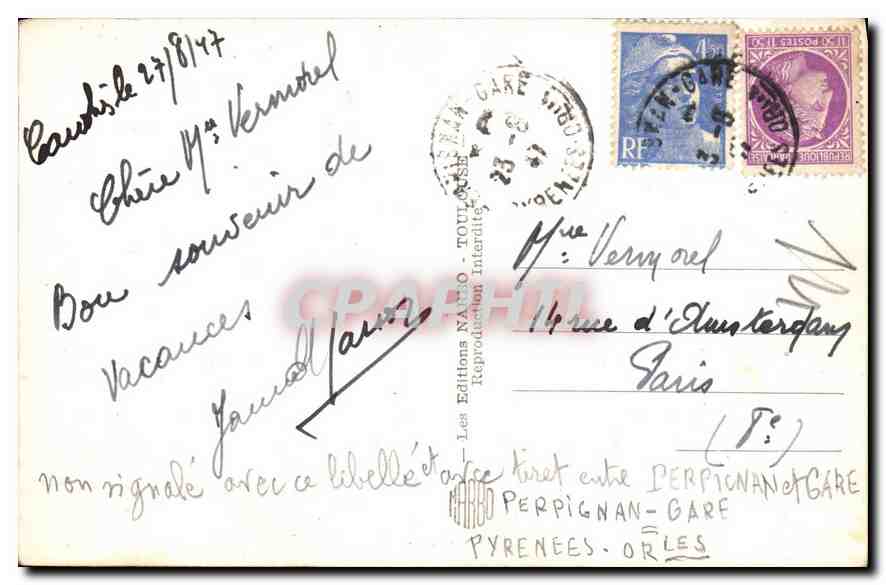 le 27/8/47
Chère Mme Vermorel
Bon souvenir de
Vacances
GARE
23
47
4F50
RF
1F50 POSTES 1F50
Les Editions NARBO - TOULOUSE
Reproduction Interdite
CPAPHIL
Mme Vermorel
14 rue d'Amsterdam
Paris
non signalé avec ce libellé et avec tiret entre PERPIGNAN et GARE
NARBO
PERPIGNAN-GARE
PYRENEES-ORLES